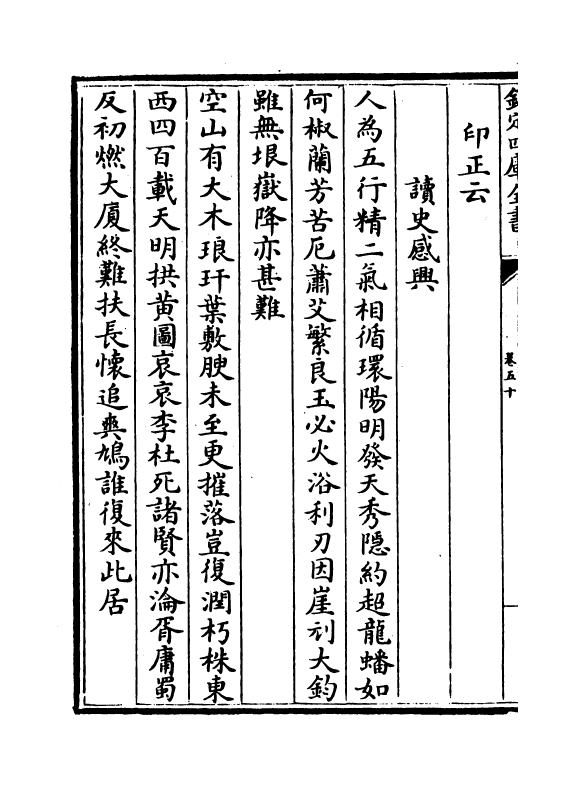 欽定四庫全書
卷五十
印正云
讀史感興
人為五行精二氣相循環陽明發天秀隱約超龍蟠如
何椒蘭芳苦厄蕭艾繁良玉必火浴利刃因崖刓大鈞
雖無垠嶽降亦甚難
空山有大木琅玕葉敷腴未至更摧落豈復潤朽株東
西四百載天明拱黄圖哀哀李杜死諸賢亦淪胥庸蜀
反初燃大厦終難扶長懷追爽鳩誰復來此居